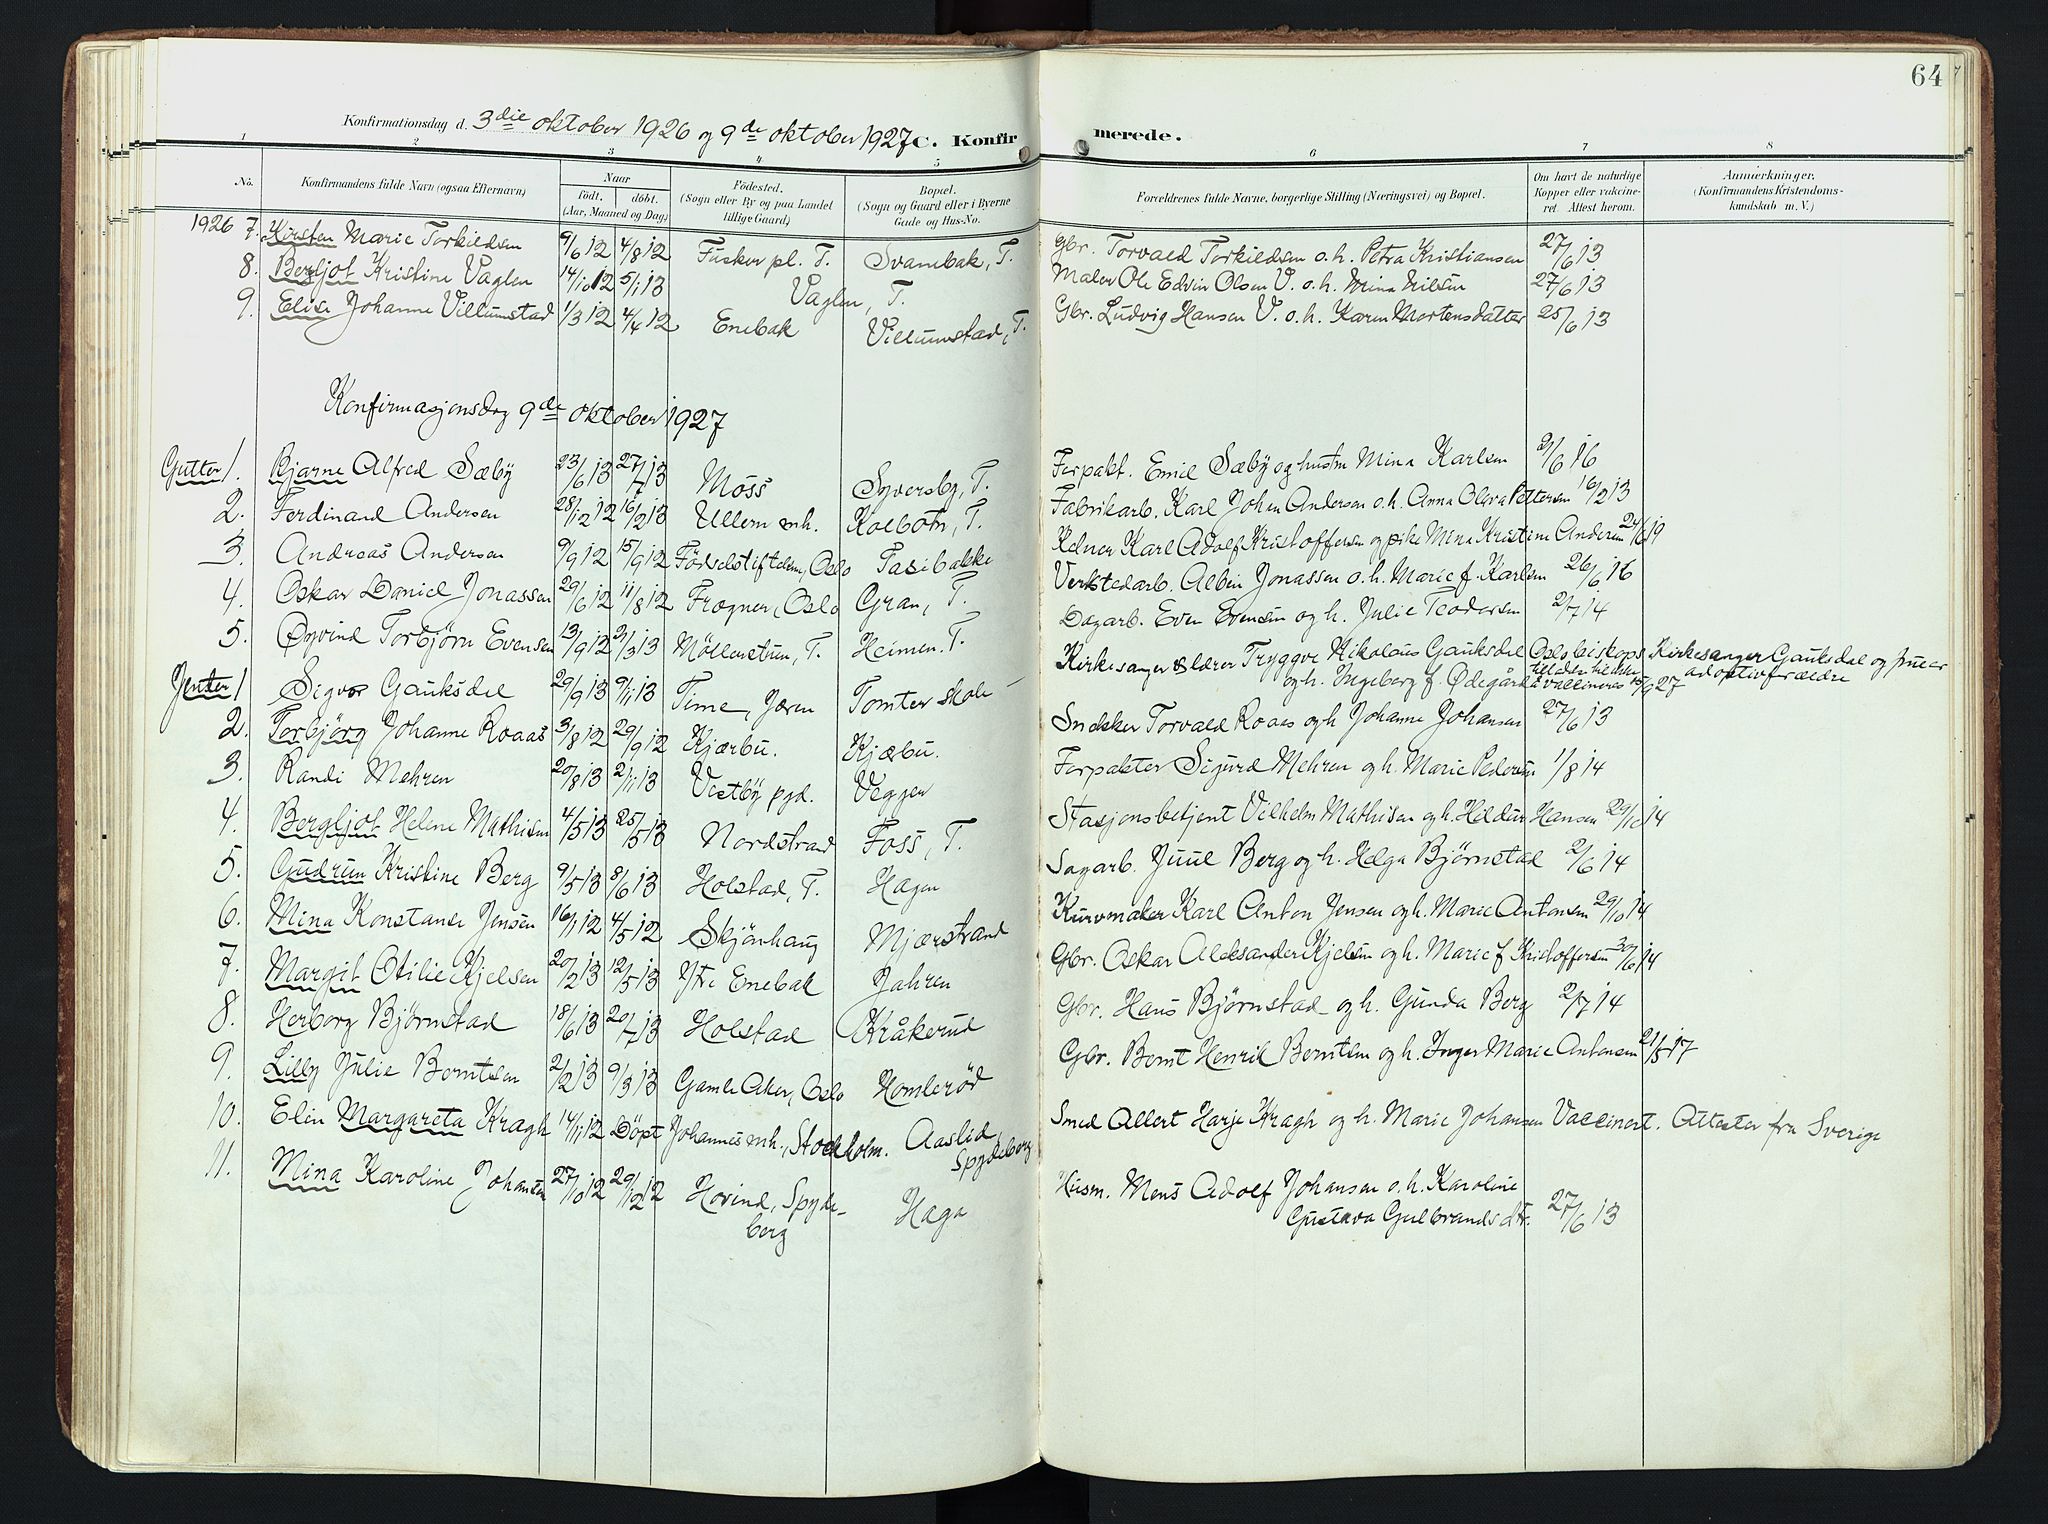 64
Konfirmationsdag d. 3die oktober 1926 og 9de oktober 1927 C. Konfirmerede.
1 2 3 4 5 6 7 8
No. Konfirmandens fulde Navn (ogsaa Efternavn) Naar født. døbt. (Aar, Maaned og Dag.) Födested. (Sogn eller By og paa Landet tillige Gaard.) Bopæl. (Sogn og Gaard eller i Byerne Gade og Hus-No. Forældrenes fulde Navne, borgerlige Stilling (Næringsvei) og Bopæl. Om havt de naturlige Kopper eller vaccineret. Attest herom. Anmærkninger. (Konfirmandens Kristendomskundskab m. V.)
1926 7. Kirsten Marie Torkildsen 9/6 12 4/8 12 Fusker pl. T. Svanebak, T. Gbr. Torvald Torkildsen o. h. Petra Kristiansen 27/6 13
8. Bergljot Kristine Vaglen 14/10 12 5/1 13 Vaglen, T. Maler Ole Edvin Olsen V. o. h. Mina Nilsen 27/6 13
9. Elise Johanne Villumstad 1/3 12 4/4 12 Enebak Villumstad, T. Gbr. Ludvig Hansen V. o. h. Karen Mortensdatter 25/6 13
Konfirmasjonsdag 9de oktober 1927
Gutter 1. Bjarne Alfred Sæby 23/6 13 27/7 13 Moss Syversby, T. Forpakt. Emil Sæby og hustru Mina Karlsen 21/6 16
2. Ferdinand Andersen 28/12 12 16/2 13 Ullern mh. Kolbotn, T. Fabrikarb. Karl Johan Andersen o. h. Anna Olava Pettersen 16/2 13
3. Andreas Andersen 9/9 12 15/9 12 Fødselstiftelsen, Oslo Tasibakke Kelner Karl Adolf Kristoffersen og pike Mina Kristine Andersen 24/6 19
4. Oskar Daniel Jonassen 29/6 12 11/8 12 Frogner, Oslo Gran, T. Verkstedarb. Albin Jonassen o. h. Marie f. Karlsen 26/6 16
5. Øyvind Torbjørn Evensen 13/9 12 31/3 13 Möllerstuen, T. Heimen, T. Dagarb. Even Evensen og h. Julie Teodorsen 2/7 14
Jenter 1 Sigvor Gauksdel 29/9 13 9/11 13 Time, Jæren Tomter skole Kirkesanger & lærer Tryggve Nikolaus Gauksdel Oslo biskops Kirkesanger Gauksdal og frue er
og h. Ingeborg f. Ødegård vaccineres 15/9 27 adoptivforældre
2. Torbjörg Johanne Roaas 3/8 12 29/9 12 Kjærbu. Kjæbu. Snekker Torvald Roaas og h Johanne Johansen 27/6 13
3. Randi Mehren 20/8 13 2/11 13 Vestby pgd. Veggen Forpakter Sigurd Mehren og h. Marie Pedersen 1/8 14
4. Bergljot Helene Mathisen 4/5 13 25/5 13 Nordstrand Foss, T. Stasjonsbetjent Vilhelm Mathisen og h. Hildur Hansen 29/10 14
5. Gudrun Kristine Berg 9/5 13 8/6 13 Holstad, T. Hagen Sagarb. Juul Berg og h. Helga Bjørnstad 2/6 14
6. Mina Konstanse Jensen 16/1 12 4/5 12 Skjönhaug Mjærstrand Kurvmaker Karl Anton Jensen og h. Marie Antonsen 29/10 14
7. Margit Otilie Kjelsen 20/2 13 12/5 13 Ytre Enebak Jahren Gbr. Oskar Aleksander Kjelsen og h. Marie f Kristoffersen 30/6 14
8. Herborg Bjørnstad 18/6 13 20/7 13 Holstad Kråkerud Gbr. Hans Bjørnstad og h. Gunda Berg 2/7 14
9. Lilly Julie Berntsen 2/2 13 9/3 13 Gamle Aker, Oslo Homlerød Gbr. Bernt Henrik Berntsen og h. Inger Marie Antonsen 21/5 17
10. Elin Margareta Kragh 14/11 12 Döpt Johannes mh., Stockholm. Aaslid, Spydeberg Smed Allert Harje Kragh og h. Marie Johansen Vaccinert. Attester fra Sverige
11. Mina Karoline Johansen 27/10 12 29/12 12 Hovind, Spyde- Haga Husm. Mens Adolf Johansen o. h. Karoline
berg Gustava Gulbrandsdtr. 27/6 13